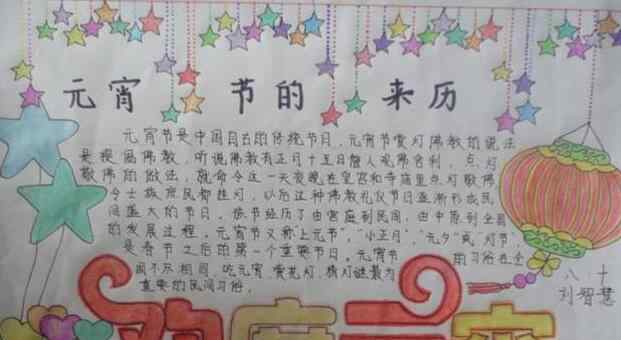 元宵 节的 来历
元宵节是中国自古的传统节日,元宵节赏灯佛教的说法
是提倡佛教,听说佛教有正月十五日僧人观佛舍利,点灯
敬佛的做法,就命令这一天夜晚在皇宫和寺庙里点灯敬佛
令士族庶民都挂灯,以后这种佛教礼仪节日逐渐形成民
间盛大的节日。该节经历了由宫庭到民间,由中原到全国
的发展过程。元宵节又称"上元节","小正月","元夕"或"灯节"
是春节之后的第一个重要节日。元宵节 的习俗在全
国不尽相同,吃元宵、赏花灯、猜灯谜最为
重要的民间习俗。
八、十
刘智慧
欢度元宵